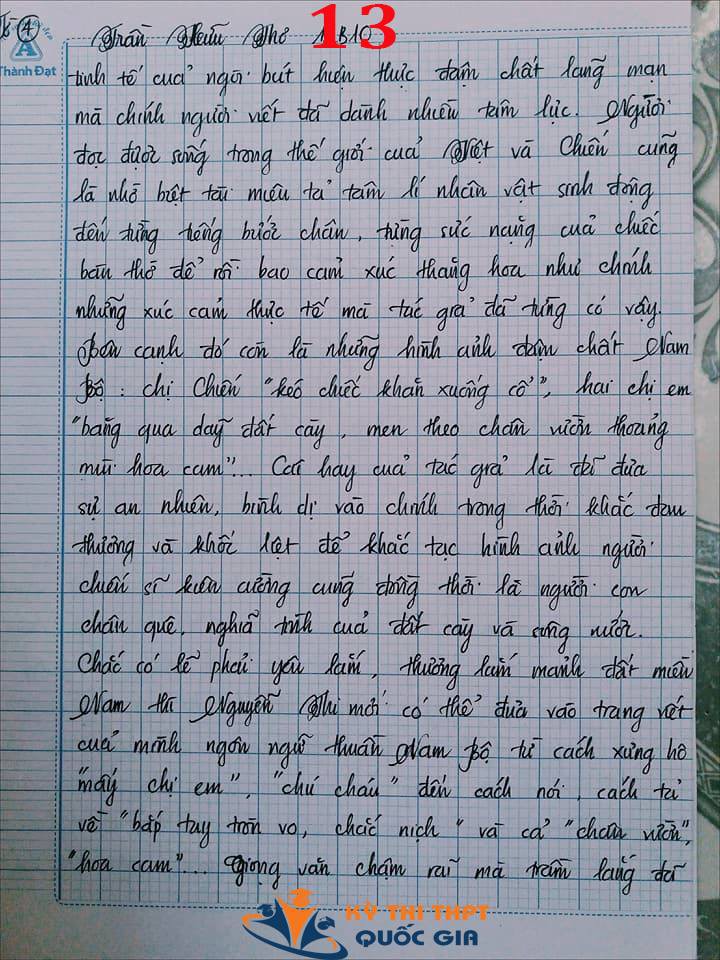 4
Thành Đạt
Trần Hữu Thơ 11B10
13
tinh tế của ngòi bút hiện thực đậm chất lãng mạn
mà chính người viết đã dành nhiều tâm lực. Người
đọc được sống trong thế giới của Việt và Chiến cũng
là nhờ biệt tài miêu tả tâm lí nhân vật sinh động
đến từng tiếng bước chân, từng sức nặng của chiếc
bàn thờ để rồi bao cảm xúc thăng hoa như chính
những xúc cảm thực tế mà tác giả đã từng có vậy.
Bên cạnh đó còn là những hình ảnh đậm chất Nam
Bộ: chị Chiến "kéo chiếc khăn xuống cổ", hai chị em
"băng qua dãy đất cày, men theo chân vườn thoảng
mùi hoa cam"... Cái hay của tác giả là đã đưa
sự an nhiên, bình dị vào chính trong thời khắc đau
thương và khốc liệt để khắc tạc hình ảnh người
chiến sĩ kiên cường cũng đồng thời là người con
chân quê, nghĩa tình của đất cày và sông nước.
Chắc có lẽ phải yêu lắm, thương lắm mảnh đất miền
Nam thì Nguyễn Thi mới có thể đưa vào trang viết
của mình ngôn ngữ thuần Nam Bộ từ cách xưng hô
"mấy chị em", "chú cháu" đến cách nói, cách tả
về "bắp tay tròn vo, chắc nịch" và cả "chân vườn",
"hoa cam"... Giọng văn chậm rãi mà trầm lắng đã
KỲ THI THPT
QUỐC GIA